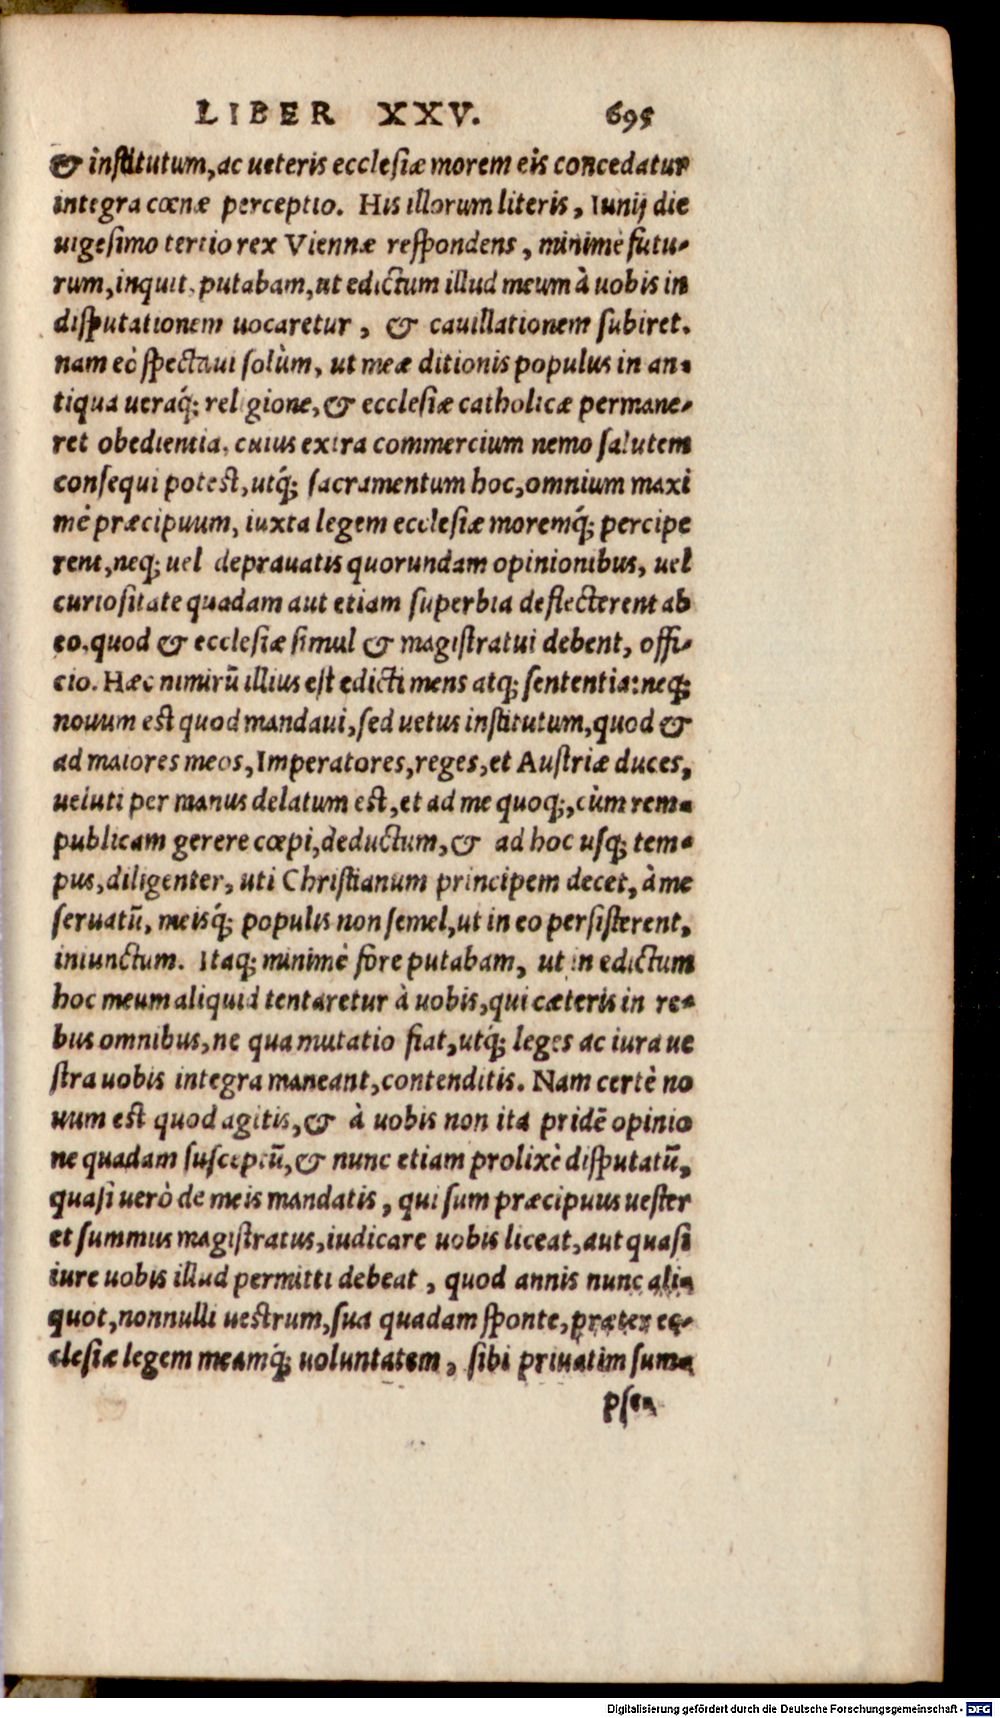 LIBER XXV. 695
& institutum, ac ueteris ecclesiæ morem eis concedatur
integra cœnæ perceptio. His illorum literis, Iunij die
uigesimo tertio rex Viennæ respondens, minimè futu-
rum, inquit, putabam, ut edictum illud meum à uobis in
disputationem uocaretur, & cauillationem subiret.
nam eò spectaui solùm, ut meæ ditionis populus in an-
tiqua ueraq́; religione, & ecclesiæ catholicæ permane-
ret obedientia, cuius extra commercium nemo salutem
consequi potest, utq́; sacramentum hoc, omnium maxi
mè præcipuum, iuxta legem ecclesiæ moremq́; percipe
rent, neq; uel deprauatis quorundam opinionibus, uel
curiositate quadam aut etiam superbia deflecterent ab
eo, quod & ecclesiæ simul & magistratui debent, offi-
cio. Hæc nimirū illius est edicti mens atq; sententia: neq;
nouum est quod mandaui, sed uetus institutum, quod &
ad maiores meos, Imperatores, reges, et Austriæ duces,
ueluti per manus delatum est, et ad me quoq;, cùm rem-
publicam gerere cœpi, deductum, & ad hoc usq; tem-
pus, diligenter, uti Christianum principem decet, à me
seruatū, meisq́; populis non semel, ut in eo persisterent,
iniunctum. Itaq; minimè fore putabam, ut in edictum
hoc meum aliquid tentaretur à uobis, qui cæteris in re-
bus omnibus, ne qua mutatio fiat, utq́; leges ac iura ue
stra uobis integra maneant, contenditis. Nam certè no
uum est quod agitis, & à uobis non ita pridē opinio
ne quadam susceptū, & nunc etiam prolixè disputatū,
quasi uerò de meis mandatis, qui sum præcipuus uester
et summus magistratus, iudicare uobis liceat, aut quasi
iure uobis illud permitti debeat, quod annis nunc ali-
quot, nonnulli uestrum, sua quadam sponte, præter ec-
clesiæ legem meamq́; uoluntatem, sibi priuatim sum-
pse-
Digitalisierung gefördert durch die Deutsche Forschungsgemeinschaft - DFG